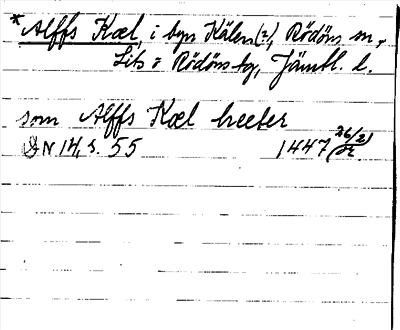 *Alffs Kæl, i byn Kälen(?), Rödöns sn,
Lits o Rödöns tg, Jämtl. l.
som Alffs Kæl heeter
JN 14, s. 55 1447 26/2 or